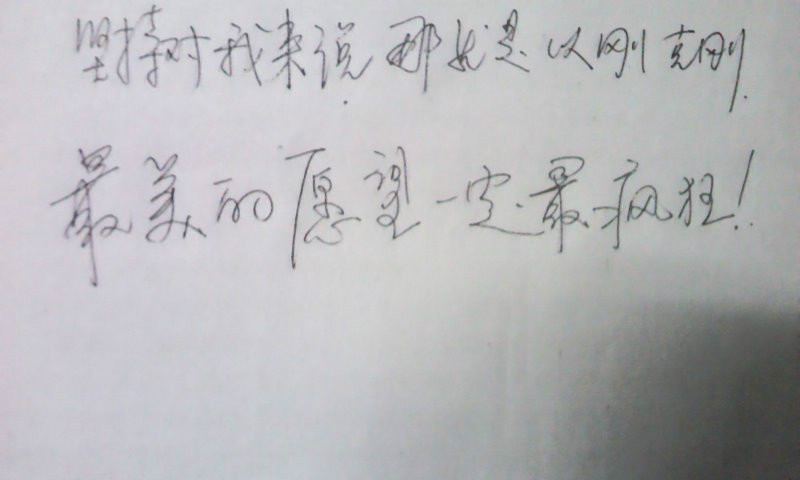 坚持对我来说那就是以刚克刚.
最美的愿望一定最疯狂!